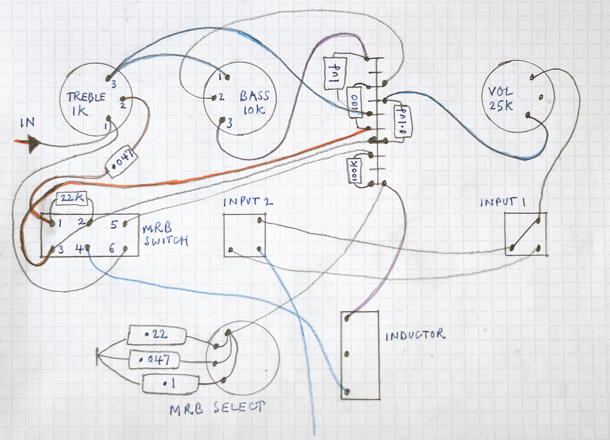 3
TREBLE
1K
2
1
1
2
BASS
10K
3
VOL
25K
IN
.047
100
100K
22K
1
2
5
3
4
6
MRB
SWITCH
INPUT 2
INPUT 1
INDUCTOR
.22
.047
.1
MRB SELECT